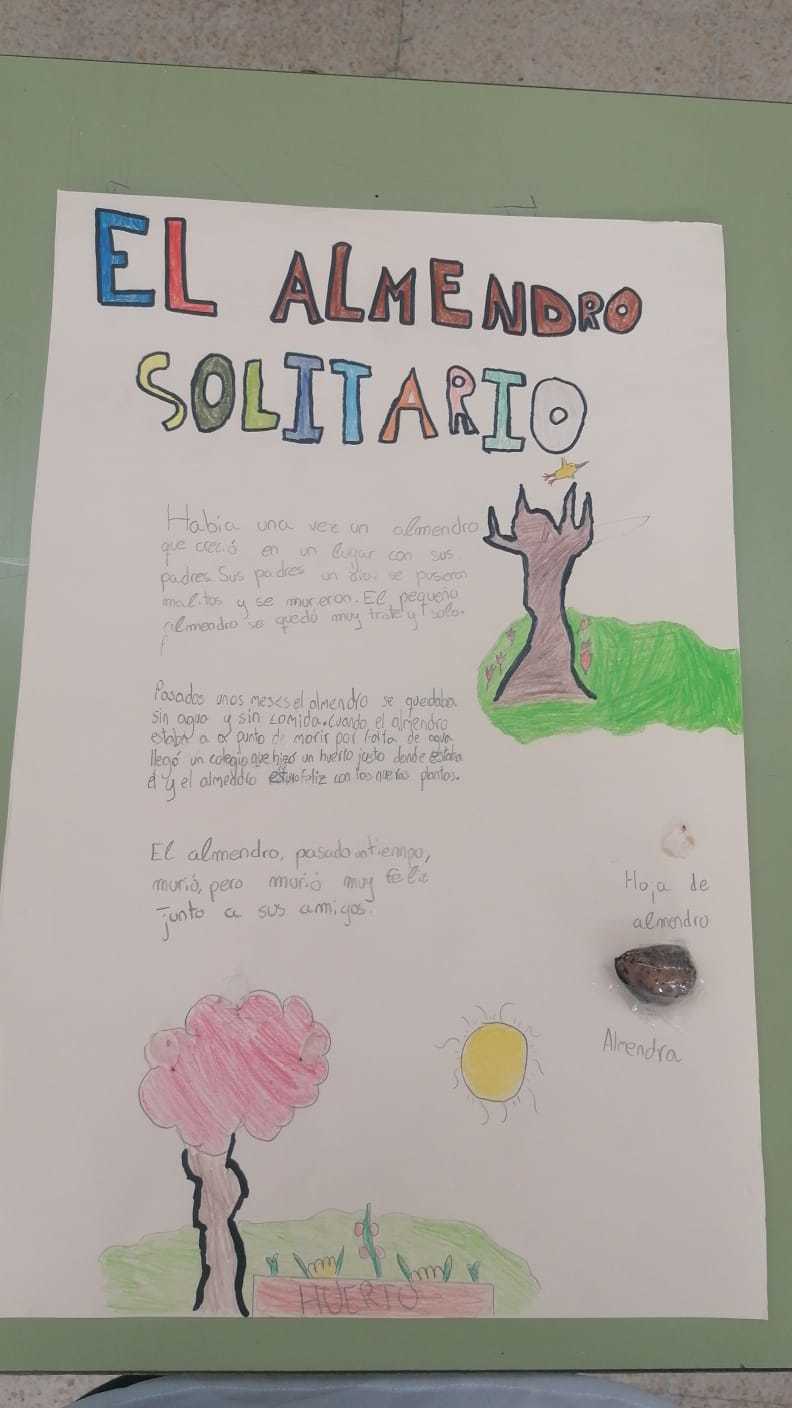 EL ALMENDRO
SOLITARIO
Había una vez un almendro
que creció en un lugar con sus
padres. Sus padres un día se pusieron
malitos y se murieron. El pequeño
almendro se quedó muy triste y solo.
Pasados unos meses el almendro se quedaba
sin agua y sin comida. Cuando el almendro
estaba a punto de morir por falta de agua
llegó un colegio que hizo un huerto justo donde estaba
él y el almendro estuvo feliz con las nuevas plantas.
El almendro, pasado un tiempo,
murió, pero murió muy feliz
junto a sus amigos.
Hoja de
almendro
Almendra
HUERTO